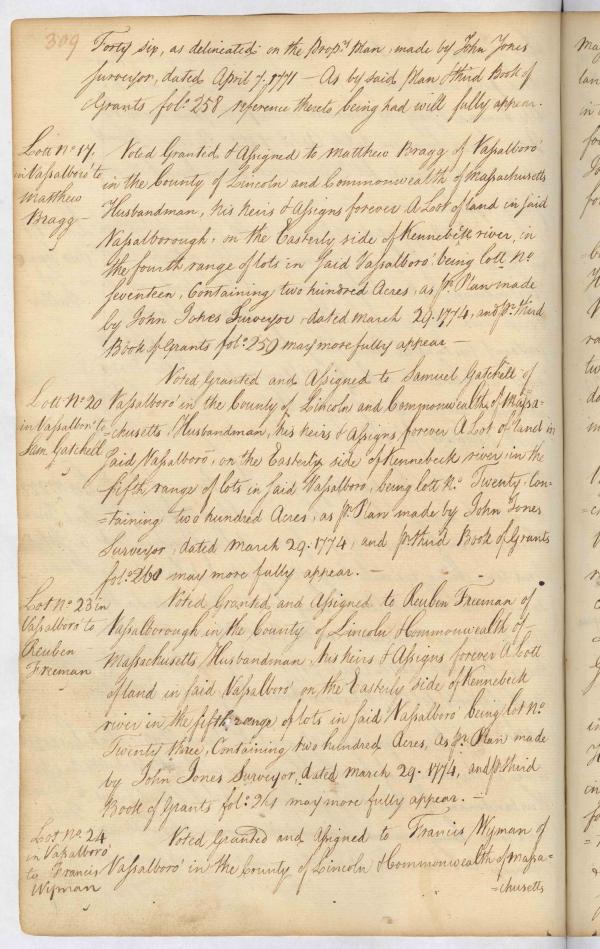 309
Forty six, as delineated on the Propy. Plan, made by John Jones
Surveyor, dated April 7. 1771 — As by said Plan & third Book of
Grants folo. 258 reference thereto being had will fully appear.
Lott No 17.
in Vassalboro' to
Matthew
Bragg —
Voted Granted & Assigned to Matthew Bragg of Vassalboro'
in the County of Lincoln and Commonwealth of Massachusetts
Husbandman, his heirs & Assigns forever A Lott of land in said
Vassalborough, on the Easterly side of Kennebeck river, in
the fourth range of lots in said Vassalboro' being lott No
Seventeen, Containing two hundred Acres, as pr. Plan made
by John Jones Surveyor, dated March 29. 1774, and pr. third
Book of Grants folo. 259 may more fully appear —
Lott No 20
in Vassalboro' to
Sam Gatchell
Voted Granted and Assigned to Samuel Gatchell of
Vassalboro' in the County of Lincoln and Commonwealth of Massa=
=chusetts, Husbandman, his heirs & Assigns forever A Lot of land in
said Vassalboro', on the Easterly side of Kennebeck river in the
fifth range of lots in said Vassalboro, being lott No. Twenty, Con-
=taining two hundred Acres, as pr. Plan made by John Jones
Surveyor, dated March 29. 1774, and pr. third Book of Grants
folo. 260 may more fully appear. —
Lot No. 23 in
Vassalboro' to
Reuben
Freeman
Voted Granted and Assigned to Reuben Freeman of
Vassalborough in the County of Lincoln & Commonwealth of
Massachusetts Husbandman, his heirs & Assigns forever A Lott
of land in said Vassalboro' on the Easterly side of Kennebeck
river in the fifth range of lots in said Vassalboro' being lot No.
Twenty three, Containing two hundred Acres, as pr. Plan made
by John Jones Surveyor, dated March 29. 1774, and pr. third
Book of Grants folo. may more fully appear. —
Lot No. 24
in Vassalboro'
to Francis
Wyman
Voted Granted and Assigned to Francis Wyman of
Vassalboro' in the County of Lincoln & Commonwealth of Massa=
=chusetts